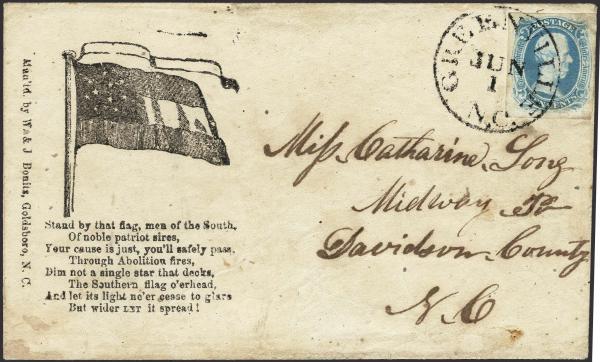 GREENVILLE
JUN
1
N.C.
POSTAGE
CENTS
Miss Catharine Long
Midway Po
Davidson County
N.C
Manf'd. by Wm & J Bonitz, Goldsboro, N. C.
Stand by that flag, men of the South,
Of noble patriot sires,
Your cause is just, you'll safely pass,
Through Abolition fires,
Dim not a single star that decks,
The Southern flag o'erhead,
And let its light ne'er cease to glare
But wider LET it spread!